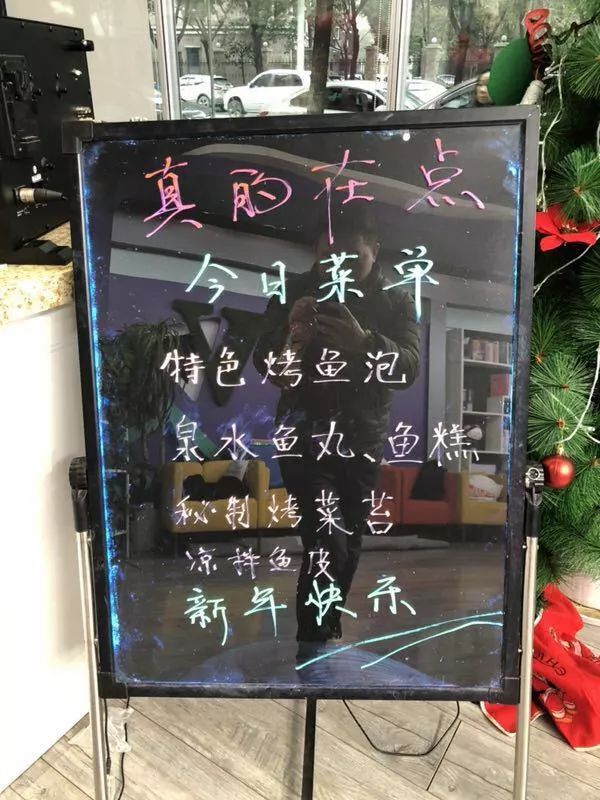 真的在点
今日菜单
特色烤鱼泡
泉水鱼丸、鱼糕
秘制烤菜苔
凉拌鱼皮
新年快乐